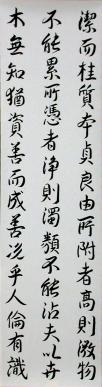 潔而桂質本貞良由所附者高則微物
不能累所憑者淨則濁類不能沾夫以卉
木無知猶資善而成善況乎人倫有識